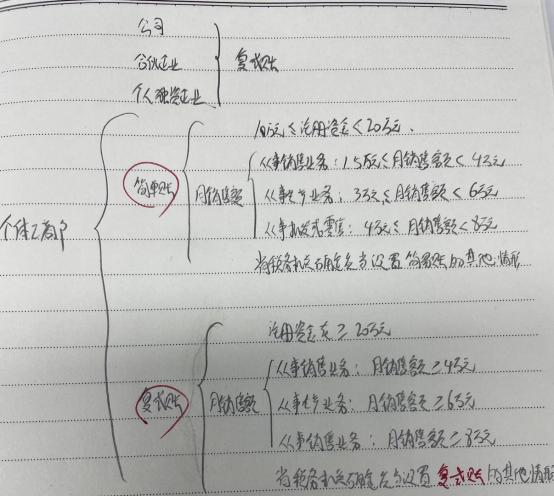 公司
合伙企业
个人独资企业
复式账
10万元≤注册资金<20万元.
从事销售业务:1.5万元≤月销售额<4万元
简单账
月销售额
从事生产业务:3万元≤月销售额<6万元
个体工商户
从事批发或零售:4万元≤月销售额<8万元
当税务机关确定应当设置简易账的其他情形
注册资金≥20万元
从事销售业务:月销售额≥4万元
复式账
月销售额
从事生产业务:月销售额≥6万元
从事销售业务:月销售额≥8万元
当税务机关确定应当设置复式账的其他情形